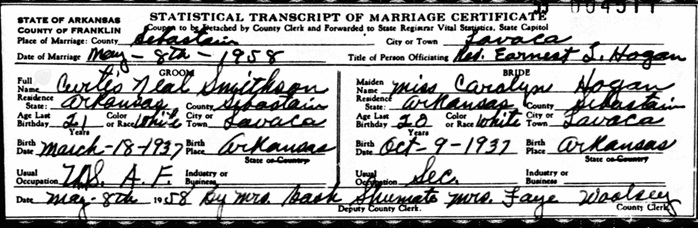 STATE OF ARKANSAS STATISTICAL TRANSCRIPT OF MARRIAGE CERTIFICATE
COUNTY OF FRANKLIN Coupon to be Detached by County Clerk and Forwarded to State Registrar Vital Statistics, State Capitol
Place of Marriage: County Sebastain City or Town Lavaca
Date of Marriage May-8th-1958 Title of Person Officiating Rev. Earnest L. Hogan
GROOM BRIDE
Full Name Curtis Neal Smithson Maiden Name Miss Carolyn Hogan
Residence State: Arkansas County Sebastain Residence State: Arkansas County Sebastain
Age Last Birthday 21 Years Color or Race White City or Town Lavaca Age Last Birthday 20 Years Color or Race White City or Town Lavaca
Birth Date March-18-1937 Birth Place Arkansas Birth Date Oct-9-1937 Birth Place Arkansas
State or Country State or Country
Usual Occupation U.S. A.F. Industry or Business Usual Occupation Sec. Industry or Business
Date May-8th 1958 By Mrs. Bash Shumate Mrs. Faye Woolsey
Deputy County Clerk. County Clerk